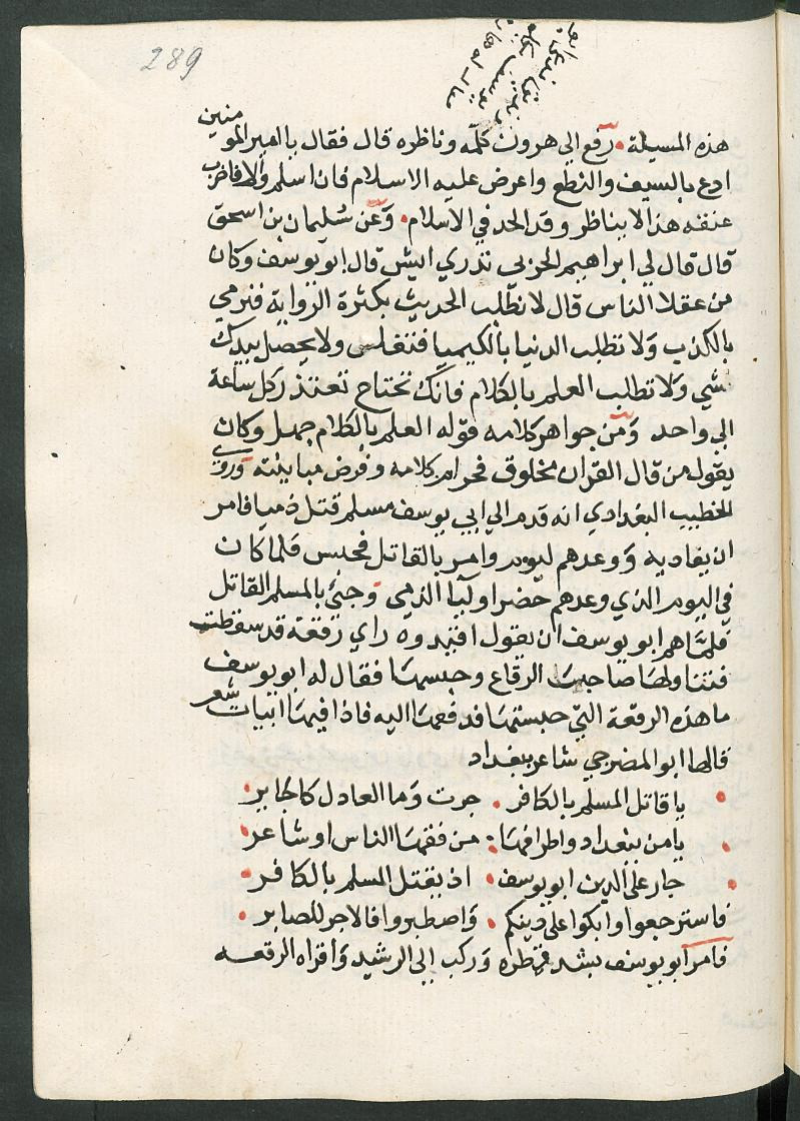 289
هذه المسيلة • رفع الي هرون كلمه وناظره قال فقال يا امير المومنين
ادع بالسيف والنطع واعرض عليه الاسلام فان اسلم والا فاضرب
عنقه هذا لا يناظر وقد الحد في الاسلام • وعن سليمان بن اسحق
قال قال لي ابراهيم الحربي تدري ايش قال ابو يوسف وكان
من عقلا الناس قال لا تطلب الحديث بكثرة الرواية فترمي
بالكذب ولا تطلب الدنيا بالكيميا فتفلس ولا يحصل بيدك
شي ولا تطلب العلم بالكلام فانك تحتاج تعتذر كل ساعة
الي واحد ومن جواهر كلامه قوله العلم بالكلام جهل وكان
يقول من قال القران مخلوق فحرام كلامه وفرض مباينته وروي
الخطيب البغدادي انه قدم الي ابي يوسف مسلم قتل ذميا فامر
ان يقاد به ووعدهم ليوم وامر بالقاتل فحبس فلما كان
في اليوم الذي وعدهم حضر اوليا الذمي وجئ بالمسلم القاتل
فلما هم ابو يوسف ان يقول اقيدوه راي رقعة قد سقطت
فتناولها صاحب الرقاع وحبسها فقال له ابو يوسف
ما هذه الرقعة التي حبستها فدفعها اليه فاذا فيها ابيات شعر
قالها ابو المضرجي شاعر ببغداد
• يا قاتل المسلم بالكافر • جرت وما العادل كالجاير •
• يا من ببغداد واطرافها • من فقها الناس او شاعر •
• جار علي الدين ابو يوسف • اذ يقتل المسلم بالكافر •
فاسترجعوا وابكوا علي دينكم • واصطبروا فالاجر للصابر •
فامر ابو يوسف بشد قمطره وركب الي الرشيد واقراه الرقعه